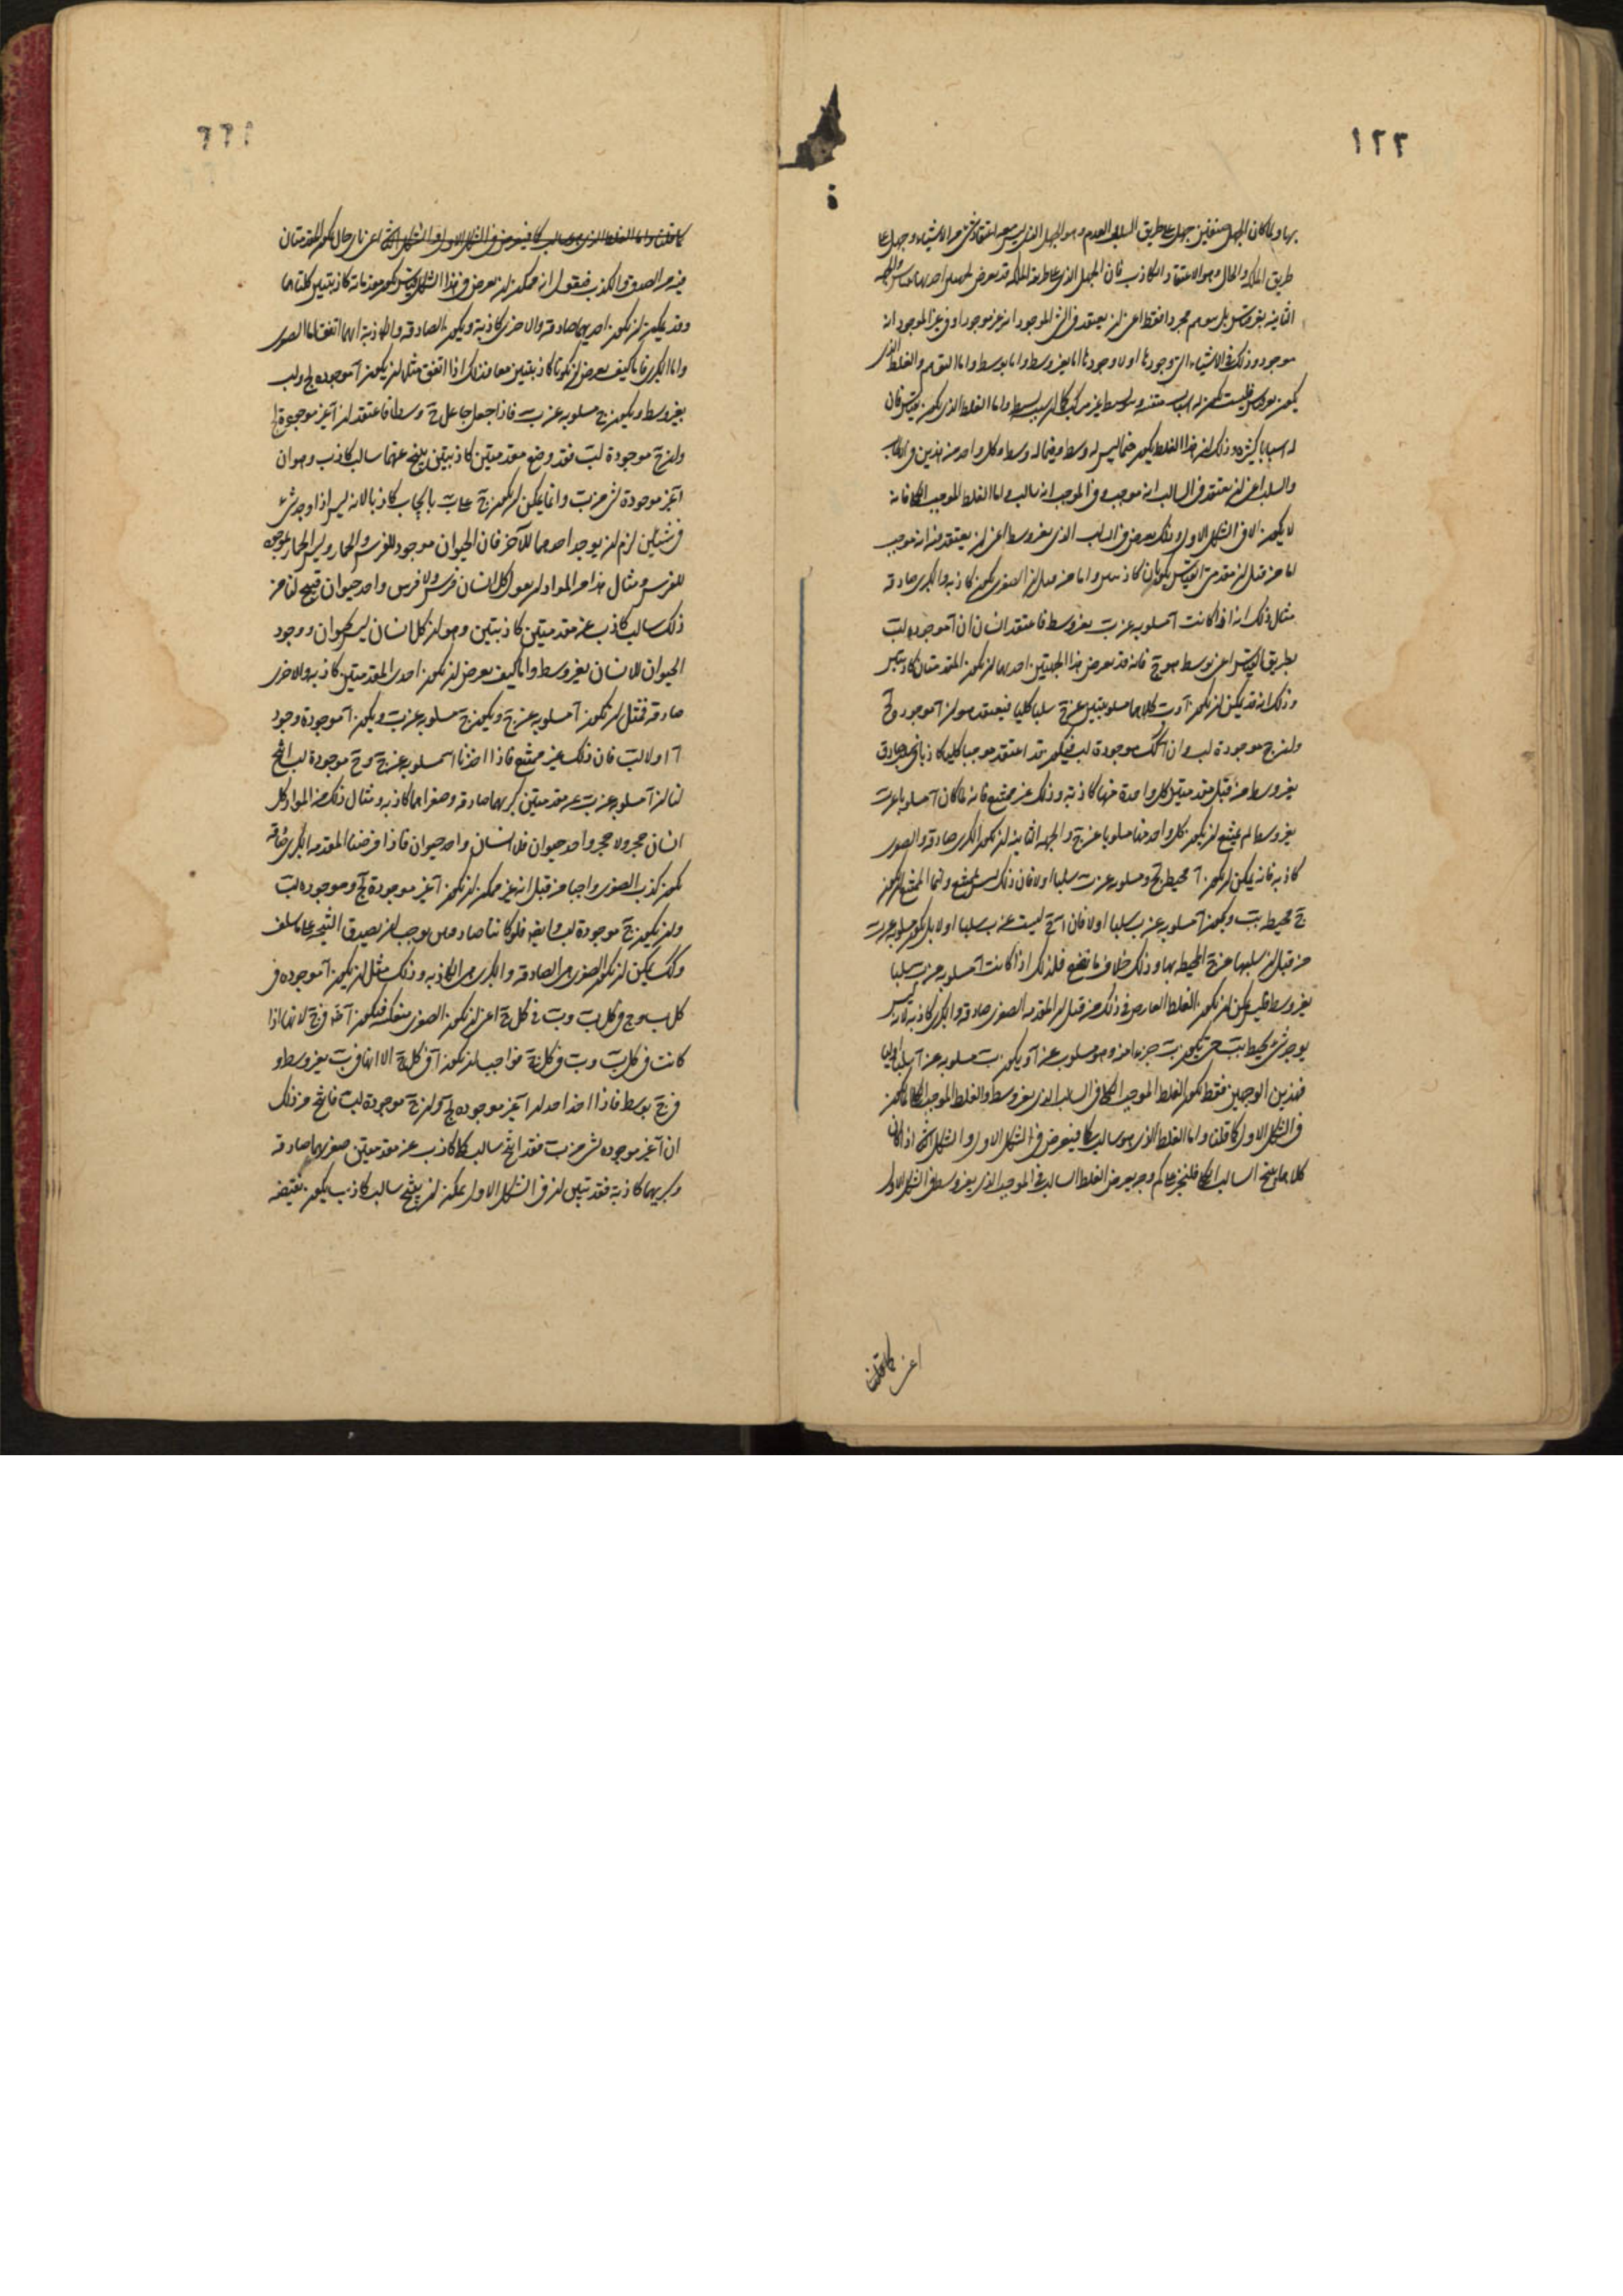 ١٢٢
بها ولما كان الجهل صنفين جهل على طريق السلب والعدم وهو الجهل الذي ليس معه اعتقاد شي من الاشياء وجهل على
طريق الملكة والحال وهو الاعتقاد الكاذب فان الجهل الذي على طريق الملكة قد يعرض احدهما بقياس والجهة
الثانية بغير قياس بل بتوهم مجرد فقط اعني ان يعتقد في الشي الموجود انه غير موجود او في غير الموجود انه
موجود وذلك في الاشياء التي وجودها اولا وجودها اما بغير وسط واما بوسط واما التوهم والغلط الذي
يكون بغير قياس فليست تكون له اسباب متفننة
له اسبابا كثيرة وذلك ان هذا الغلط يكون فيما ليس له وسط وفيما له وسط وكل واحد من هذين في الايجاب
والسلب اعني ان يعتقد في السالب انه موجب وفي الموجب انه سالب واما الغلط الموجب الكلي فانه
لا يكون الا في الشكل الاول وذلك يعرض في السالب الذي بغير وسط اعني ان يعتقد فيه انه موجب
اما من قبل ان مقدمتي القياس يكونان كاذبتين واما من قبل ان الصغرى تكون كاذبة والكبرى صادقة
مثال ذلك انه اذا كانت آ مسلوبة عن ب بغير وسط فاعتقد انسان ان آ موجودة لب
بطريق القياس اعني بوسط هو ج فانه قد يعرض هذا الجهتين احدهما ان تكون المقدمتان كاذبتين
وذلك انه قد يمكن ان تكون آ وب كلاهما مسلوبتين عن ج سلبا كليا فيعتقد هو ان آ موجود في ج
وان ج موجودة لب وان آ لذلك موجودة لب فيكون قد اعتقد موجبا كليا كاذبا
بغير وسط من قبل مقدمتين كل واحدة منهما كاذبة وذلك غير ممتنع فانه لما كان آ مسلوبا عن ب
بغير وسط لم يمتنع ان يكون كل واحد منهما مسلوبا عن ج والجهة الثانية ان تكون الكبرى صادقة والصغرى
كاذبة فانه يمكن ان تكون آ محيط بج ومسلوبة عن ب سلبا اولا فان ذلك ليس بممتنع وانما الممتنع ان تكون
ج محيط بب وتكون آ مسلوبة عن ب سلبا اولا فان آ ج ليست عن ب سلبا اولا بل تكون مسلوبة عن ب
من قبل سلبها عن ج المحيطة بها وذلك خلاف ما نضع فلذلك اذا كانت آ مسلوبة عن ب سلبا
بغير وسط فليس يمكن ان يكون الغلط العارض في ذلك من قبل ان المقدمة الصغرى صادقة والكبرى كاذبة لانه ليس
يوجد شي محيط بب حتى يكون ب جزءا منه وهو مسلوب عن آ ويكون ب مسلوبة عن آ سلبا اوليا
فبهذين الوجهين فقط يكون الغلط الموجب الكلي في السالب الذي بغير وسط والغلط الموجب الكلي انما يكون
في الشكل الاول كما قلنا واما الغلط الذي هو سالب كلي فيعرض في الشكل الاول والشكل الثاني اذ كان
كلاهما ينتج السالب الكلي فلنخبر على كم وجه يعرض الغلط السالب في الموجب الذي بغير وسط في الشكل الاول
اعني كما قلنا
كما قلنا واما الغلط الذي هو سالب كلي فيعرض في الشكل الاول والشكل الثاني اعني باي حال تكون المقدمتان
فيه من الصدق والكذب فنقول انه ممكن ان يعرض في هذا الشكل قياس تكون مقدماته كاذبتين كلتاهما
وقد يمكن ان تكون احديهما صادقة والاخرى كاذبة وتكون الصادقة والكاذبة ايهما اتفق اما الصغرى
واما الكبرى فاما كيف يعرض ان تكونا كاذبتين معا فذلك اذا اتفق مثل ان يكون آ موجودة لج ولب
بغير وسط ويكون ج مسلوبة عن ب فاذا جعل جاعل ج وسطا فاعتقد ان آ غير موجودة لج
وان ج موجودة لب فقد وضع مقدمتين كاذبتين ينتج عنهما سالب كاذب وهو ان
آ غير موجودة لشي من ب وانما يمكن ان تكون ج على ب بايجاب كاذبا لانه ليس اذا وجد شي
في شيئين لزم ان يوجد احدهما للآخر فان الحيوان موجود للفرس والحمار وليس الحمار بموجود
للفرس ومثال هذا من المواد ان يقول كل انسان فرس ولا فرس واحد حيوان فينتج لنا من
ذلك سالب كاذب عن مقدمتين كاذبتين وهو ان كل انسان ليس بحيوان ووجود
الحيوان للانسان بغير وسط واما كيف يعرض ان تكون احدى المقدمتين كاذبة والاخرى
صادقة فمثل ان تكون آ مسلوبة عن ج وتكون ج مسلوبة عن ب وتكون آ موجودة وجود
آ اولا لب فان ذلك غير ممتنع فاذا اخذنا آ مسلوبة عن ج وج موجودة لب انتج
لنا ان آ مسلوبة عن ب عن مقدمتين كبريهما صادقة وصغراهما كاذبة ومثال ذلك من المواد كل
انسان حجر ولا حجر واحد حيوان فلا انسان واحد حيوان فاذا فرضنا المقدمة الكبرى صادقة
يكون كذب الصغرى واجبا من قبل انه غير ممكن ان تكون آ غير موجودة لج وموجودة لب
وان يكون ج موجودة لب وايضا فلو كانتا صادقتين لوجب ان يصدق النتيجة على ما سلف
وكذلك يمكن ان تكون الصغرى هي الصادقة والكبرى هي الكاذبة وذلك مثل ان يكون آ موجودة في
كل ب وج في كل ب وب في كل ج اعني ان تكون الصغرى منعكسة فيكون آ في ج لانها اذا
كانت في كل ب وب في كل ج فواجب ان تكون آ في كل ج الا انها في ب بغير وسط و
في ج بوسط فاذا اخذ احد ان آ غير موجودة لج وان ج موجودة لب فانتج من ذلك
ان آ غير موجودة لشي من ب فقد انتج سالب كلي كاذب عن مقدمتين صغريهما صادقة
وكبريهما كاذبة فقد تبين ان في الشكل الاول يمكن ان ينتج سالب كاذب يكون نقيضه